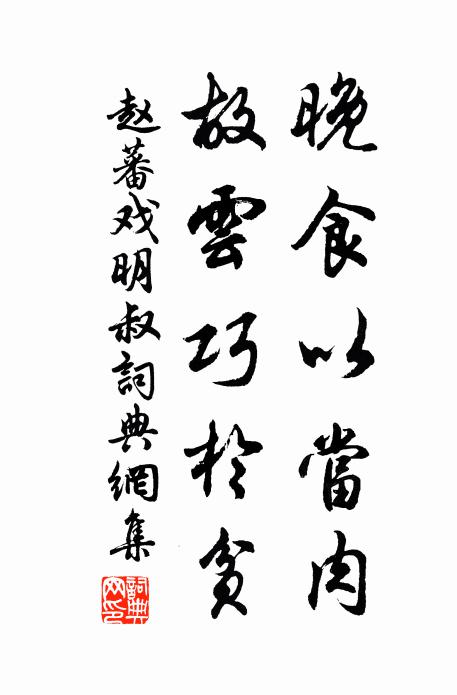 晚食以當肉
故雲巧於貧
赵蕃戏明叔詞典網集
詞典网印